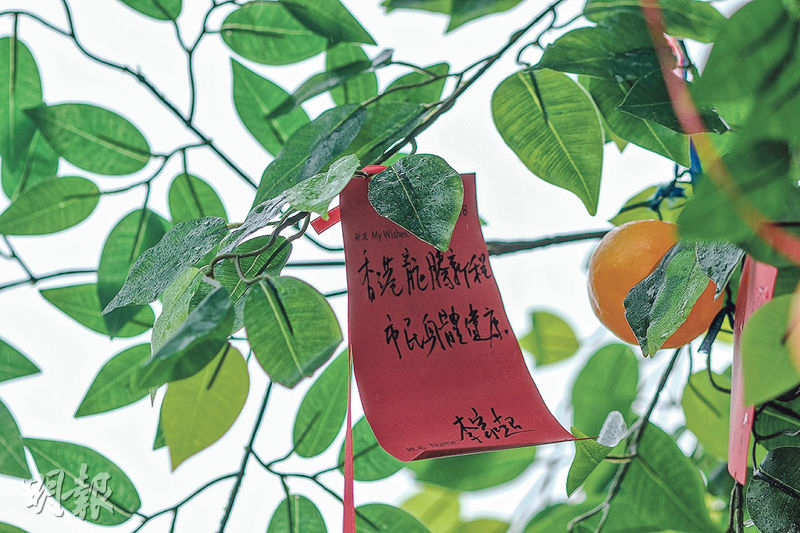 祈望 My Wishes
香港龍騰新程
市民身體健康
姓名 Name: 李家超
明報